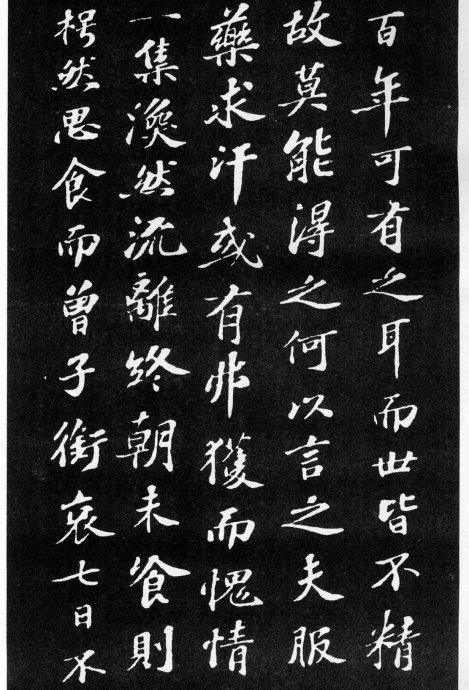 百年可有之耳而世皆不精
故莫能淂之何以言之夫服
藥求汗或有弗獲而愧情
一集渙然流離終朝未飡則
枵然思食而曾子銜哀七日不